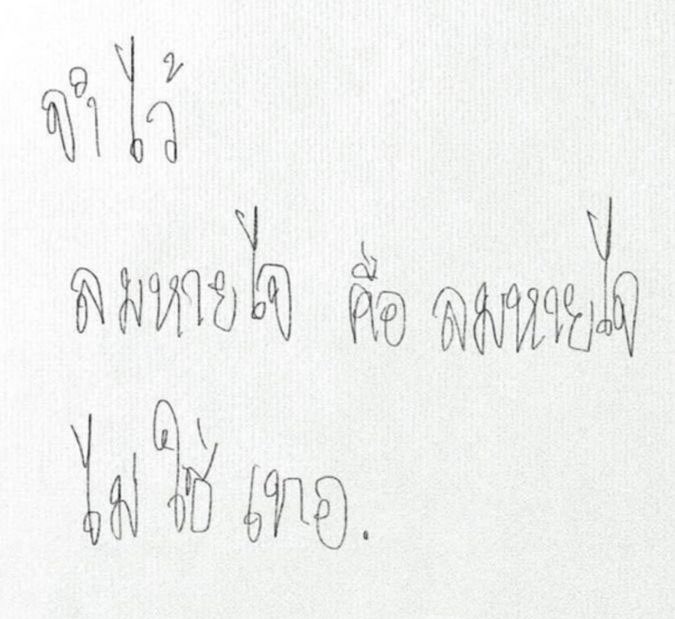 จำไว้
ลมหายไจ คือ ลมหายไจ
ไม ใช่ เทอ.